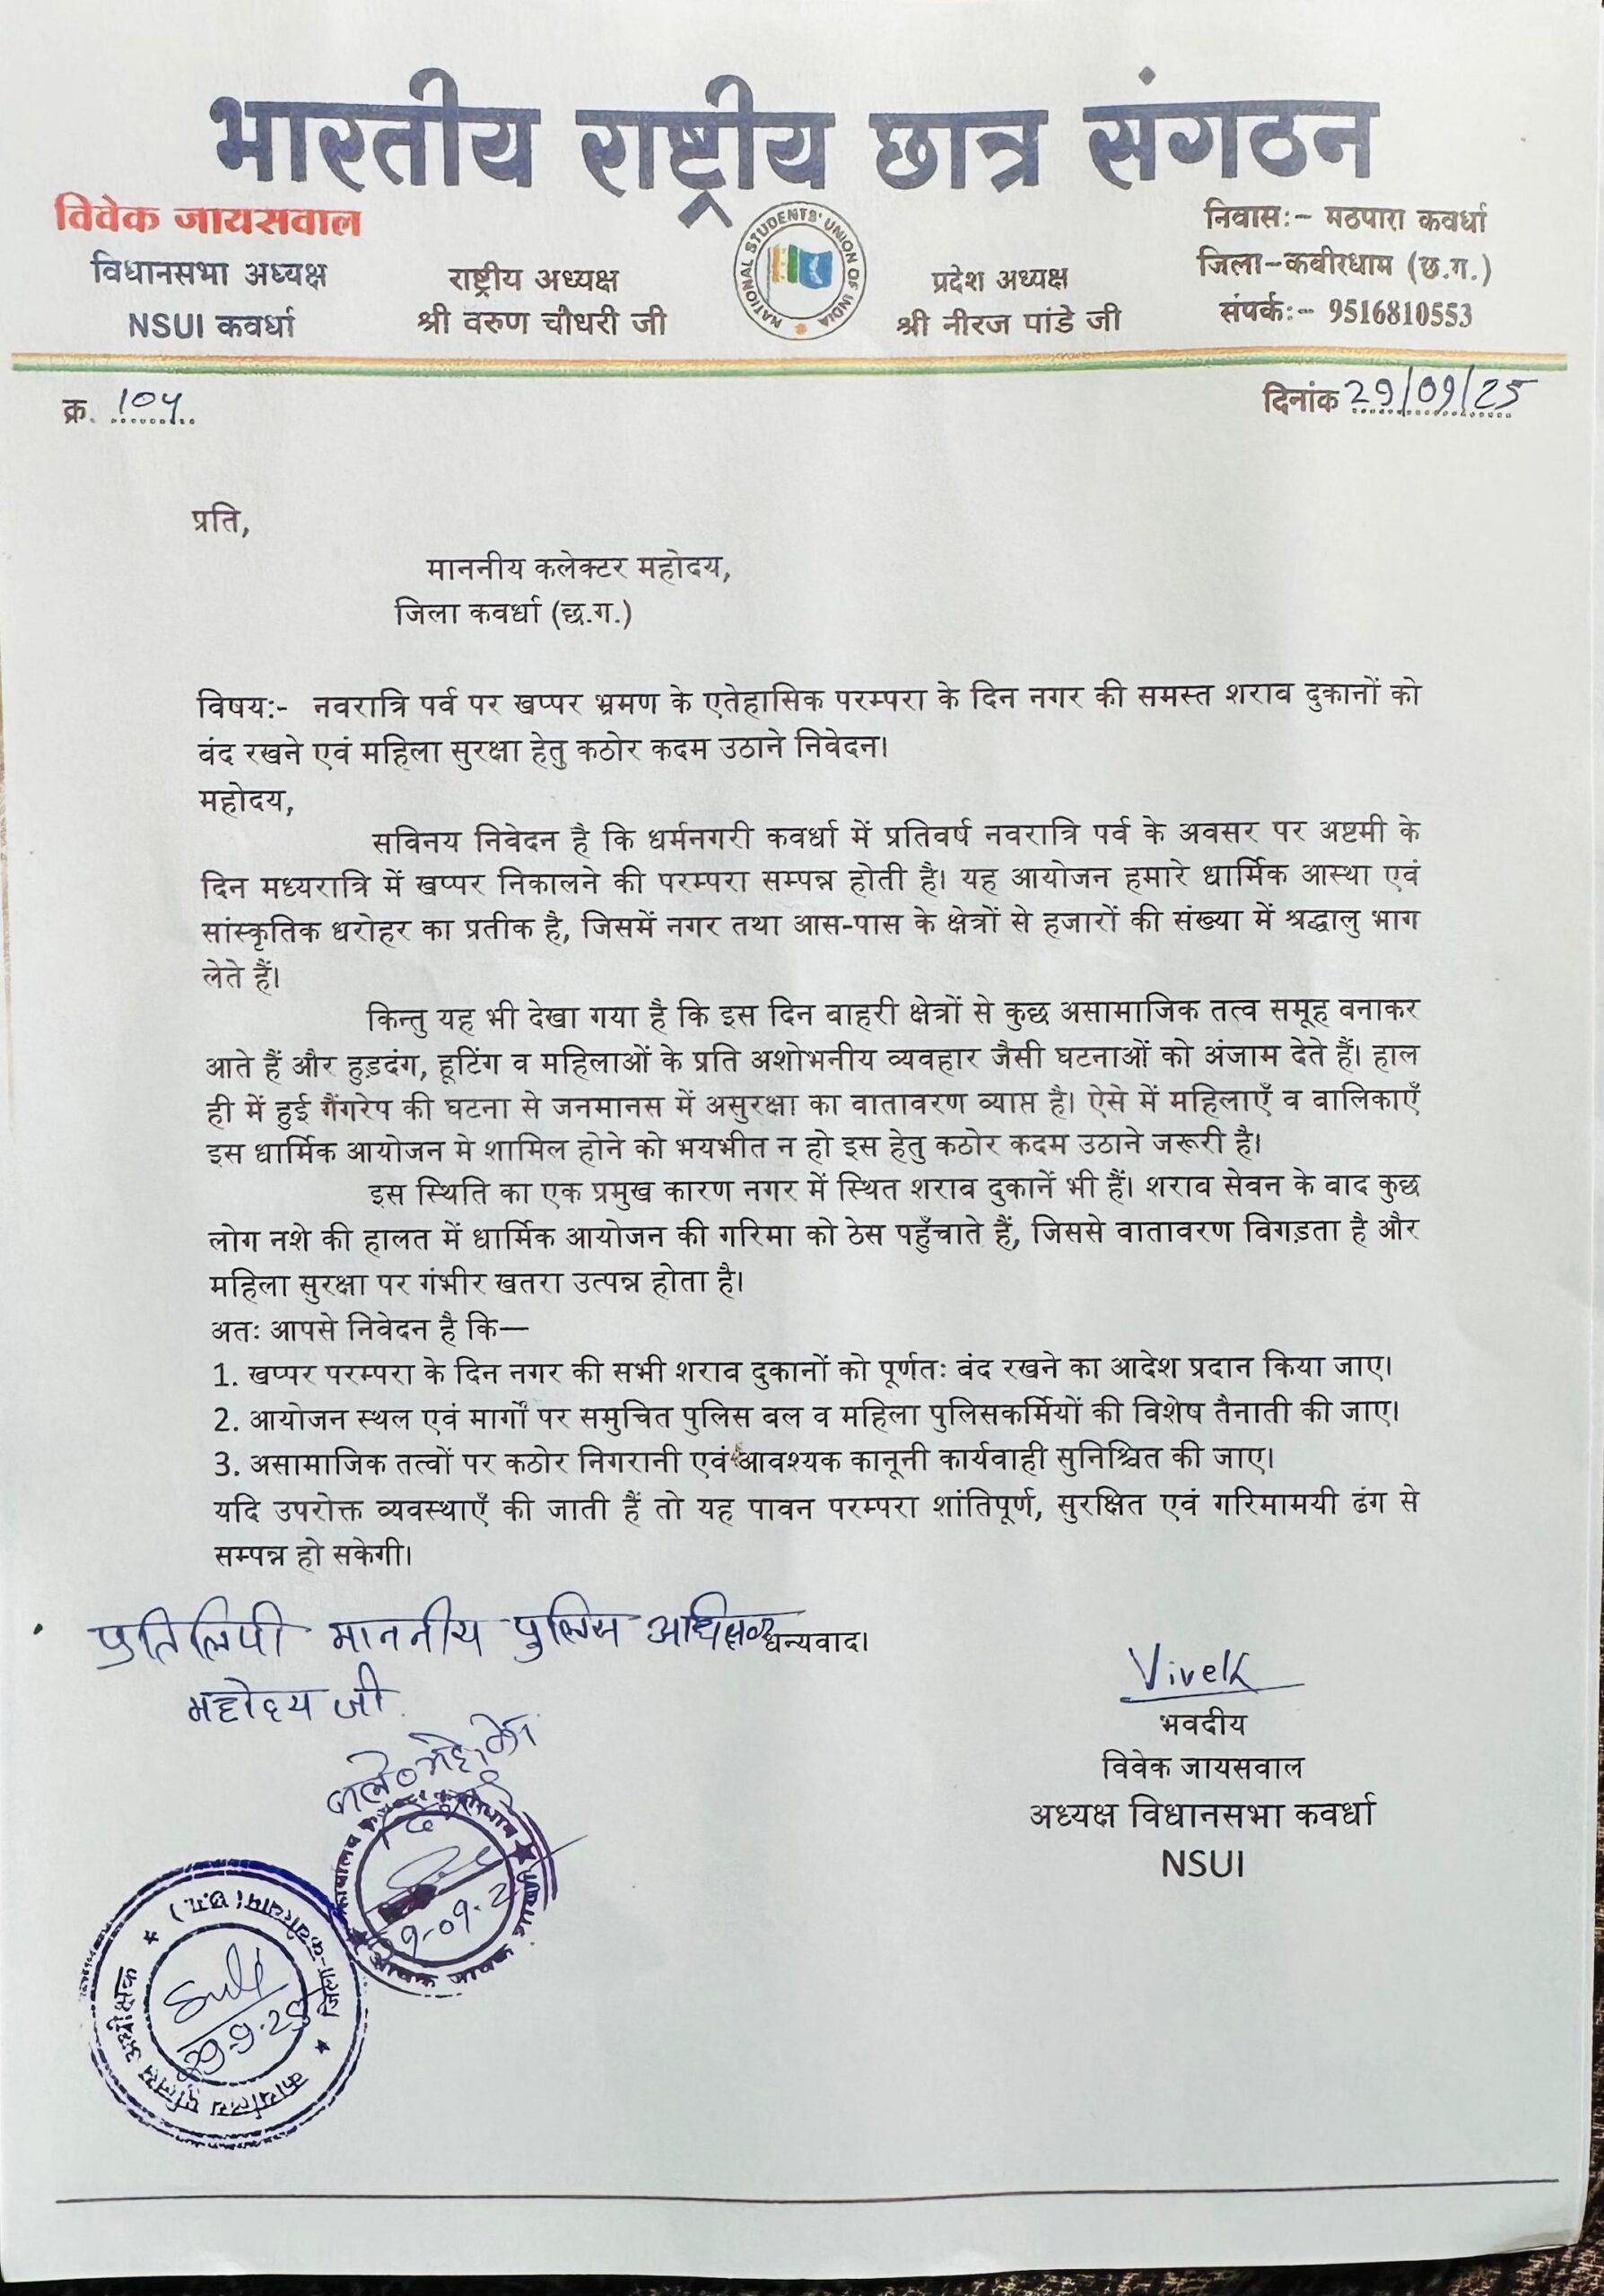 भारतीय राष्ट्रीय छात्र संगठन
विवेक जायसवाल
विधानसभा अध्यक्ष
NSUI कवर्धा
राष्ट्रीय अध्यक्ष
श्री वरुण चौधरी जी
NATIONAL STUDENTS' UNION OF INDIA
प्रदेश अध्यक्ष
श्री नीरज पांडे जी
निवास:- मठपारा कवर्धा
जिला-कबीरधाम (छ.ग.)
संपर्क:- 9516810553
क्र. 104
दिनांक 29/09/25
प्रति,
माननीय कलेक्टर महोदय,
जिला कवर्धा (छ.ग.)
विषय:- नवरात्रि पर्व पर खप्पर भ्रमण के एतेहासिक परम्परा के दिन नगर की समस्त शराब दुकानों को
बंद रखने एवं महिला सुरक्षा हेतु कठोर कदम उठाने निवेदन।
महोदय,
सविनय निवेदन है कि धर्मनगरी कवर्धा में प्रतिवर्ष नवरात्रि पर्व के अवसर पर अष्टमी के
दिन मध्यरात्रि में खप्पर निकालने की परम्परा सम्पन्न होती है। यह आयोजन हमारे धार्मिक आस्था एवं
सांस्कृतिक धरोहर का प्रतीक है, जिसमें नगर तथा आस-पास के क्षेत्रों से हजारों की संख्या में श्रद्धालु भाग
लेते हैं।
किन्तु यह भी देखा गया है कि इस दिन बाहरी क्षेत्रों से कुछ असामाजिक तत्व समूह बनाकर
आते हैं और हुड़दंग, हूटिंग व महिलाओं के प्रति अशोभनीय व्यवहार जैसी घटनाओं को अंजाम देते हैं। हाल
ही में हुई गैंगरेप की घटना से जनमानस में असुरक्षा का वातावरण व्याप्त है। ऐसे में महिलाएँ व बालिकाएँ
इस धार्मिक आयोजन मे शामिल होने को भयभीत न हो इस हेतु कठोर कदम उठाने जरूरी है।
इस स्थिति का एक प्रमुख कारण नगर में स्थित शराब दुकानें भी हैं। शराब सेवन के बाद कुछ
लोग नशे की हालत में धार्मिक आयोजन की गरिमा को ठेस पहुँचाते हैं, जिससे वातावरण बिगड़ता है और
महिला सुरक्षा पर गंभीर खतरा उत्पन्न होता है।
अतः आपसे निवेदन है कि—
1. खप्पर परम्परा के दिन नगर की सभी शराब दुकानों को पूर्णतः बंद रखने का आदेश प्रदान किया जाए।
2. आयोजन स्थल एवं मार्गों पर समुचित पुलिस बल व महिला पुलिसकर्मियों की विशेष तैनाती की जाए।
3. असामाजिक तत्वों पर कठोर निगरानी एवं आवश्यक कानूनी कार्यवाही सुनिश्चित की जाए।
यदि उपरोक्त व्यवस्थाएँ की जाती हैं तो यह पावन परम्परा शांतिपूर्ण, सुरक्षित एवं गरिमामयी ढंग से
सम्पन्न हो सकेगी।
प्रतिलिपी माननीय पुलिस
धन्यवाद।
महोदय जी
Vivek
भवदीय
विवेक जायसवाल
अध्यक्ष विधानसभा कवर्धा
NSUI
29-09-2
आवक जावक शाखा
कार्यालय पुलिस अधीक्षक
जिला-कबीरधाम (छ.ग.)
29-9-25